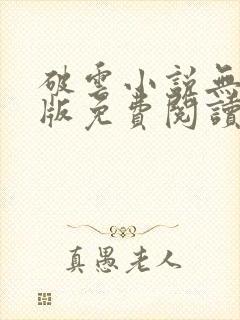 破雲小説無
版免費閱讀
真愚老人